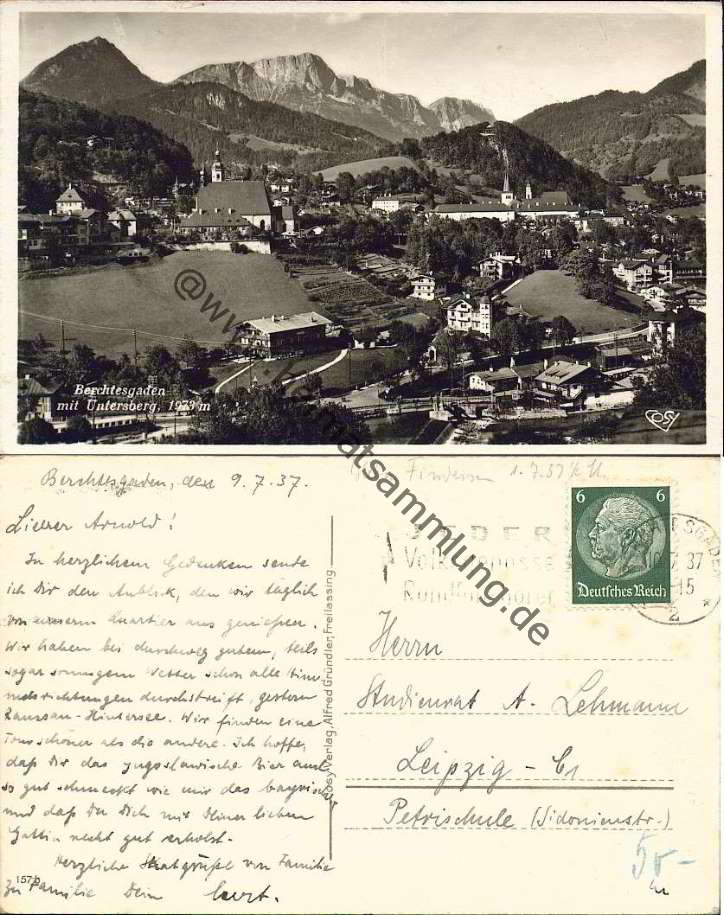 Berchtesgaden
mit Untersberg, 1973 m
COSY
@www.heimatsammlung.de
Berchtesgaden, den 9.7.37.
Lieber Arnold!
In herzlichem Gedenken sende
ich Dir den Anblick, den wir täglich
von unserm Quartier aus genießen.
Wir haben bei durchweg gutem, teils
sogar sonnigem Wetter schon alle Him-
melsrichtungen durchstreift, gestern
Ramsau-Hintersee. Wir finden eine
Tour schöner als die andere. Ich hoffe,
daß Dir das jugoslawische Bier auch
so gut schmeckt wie mir das bayrische
und daß Du Dich mit Deiner lieben
Gattin recht gut erholst.
Herzliche Skatgrüße von Familie
zu Familie Dein Curt.
157b
Cosy Verlag, Alfred Gründler, Freilassing
1.7.37
JEDER
Volksgenosse
Rundfunkhörer
6 6
Deutsches Reich
BERCHTESGADEN
7.37
15
2
Herrn
Studienrat A. Lehmann
Leipzig - C1
Petrischule (Sidonienstr.)
50-